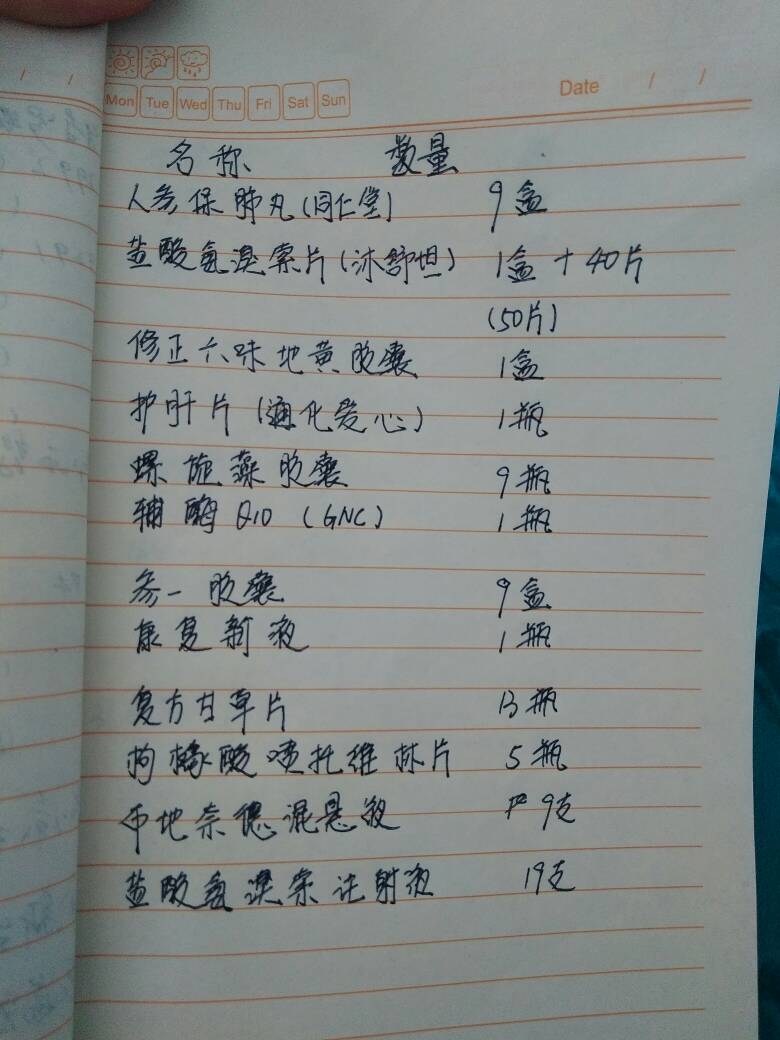 Mon Tue Wed Thu Fri Sat Sun Date / /
名称 数量
人参保肺丸(同仁堂) 9盒
盐酸氨溴索片(沐舒坦) 1盒+40片
(50片)
修正六味地黄胶囊 1盒
护肝片(通化爱心) 1瓶
螺旋藻胶囊 9瓶
辅酶Q10(GNC) 1瓶
参一胶囊 9盒
康复新液 1瓶
复方甘草片 13瓶
枸橼酸喷托维林片 5瓶
布地奈德混悬液 9支
盐酸氨溴索注射液 19支